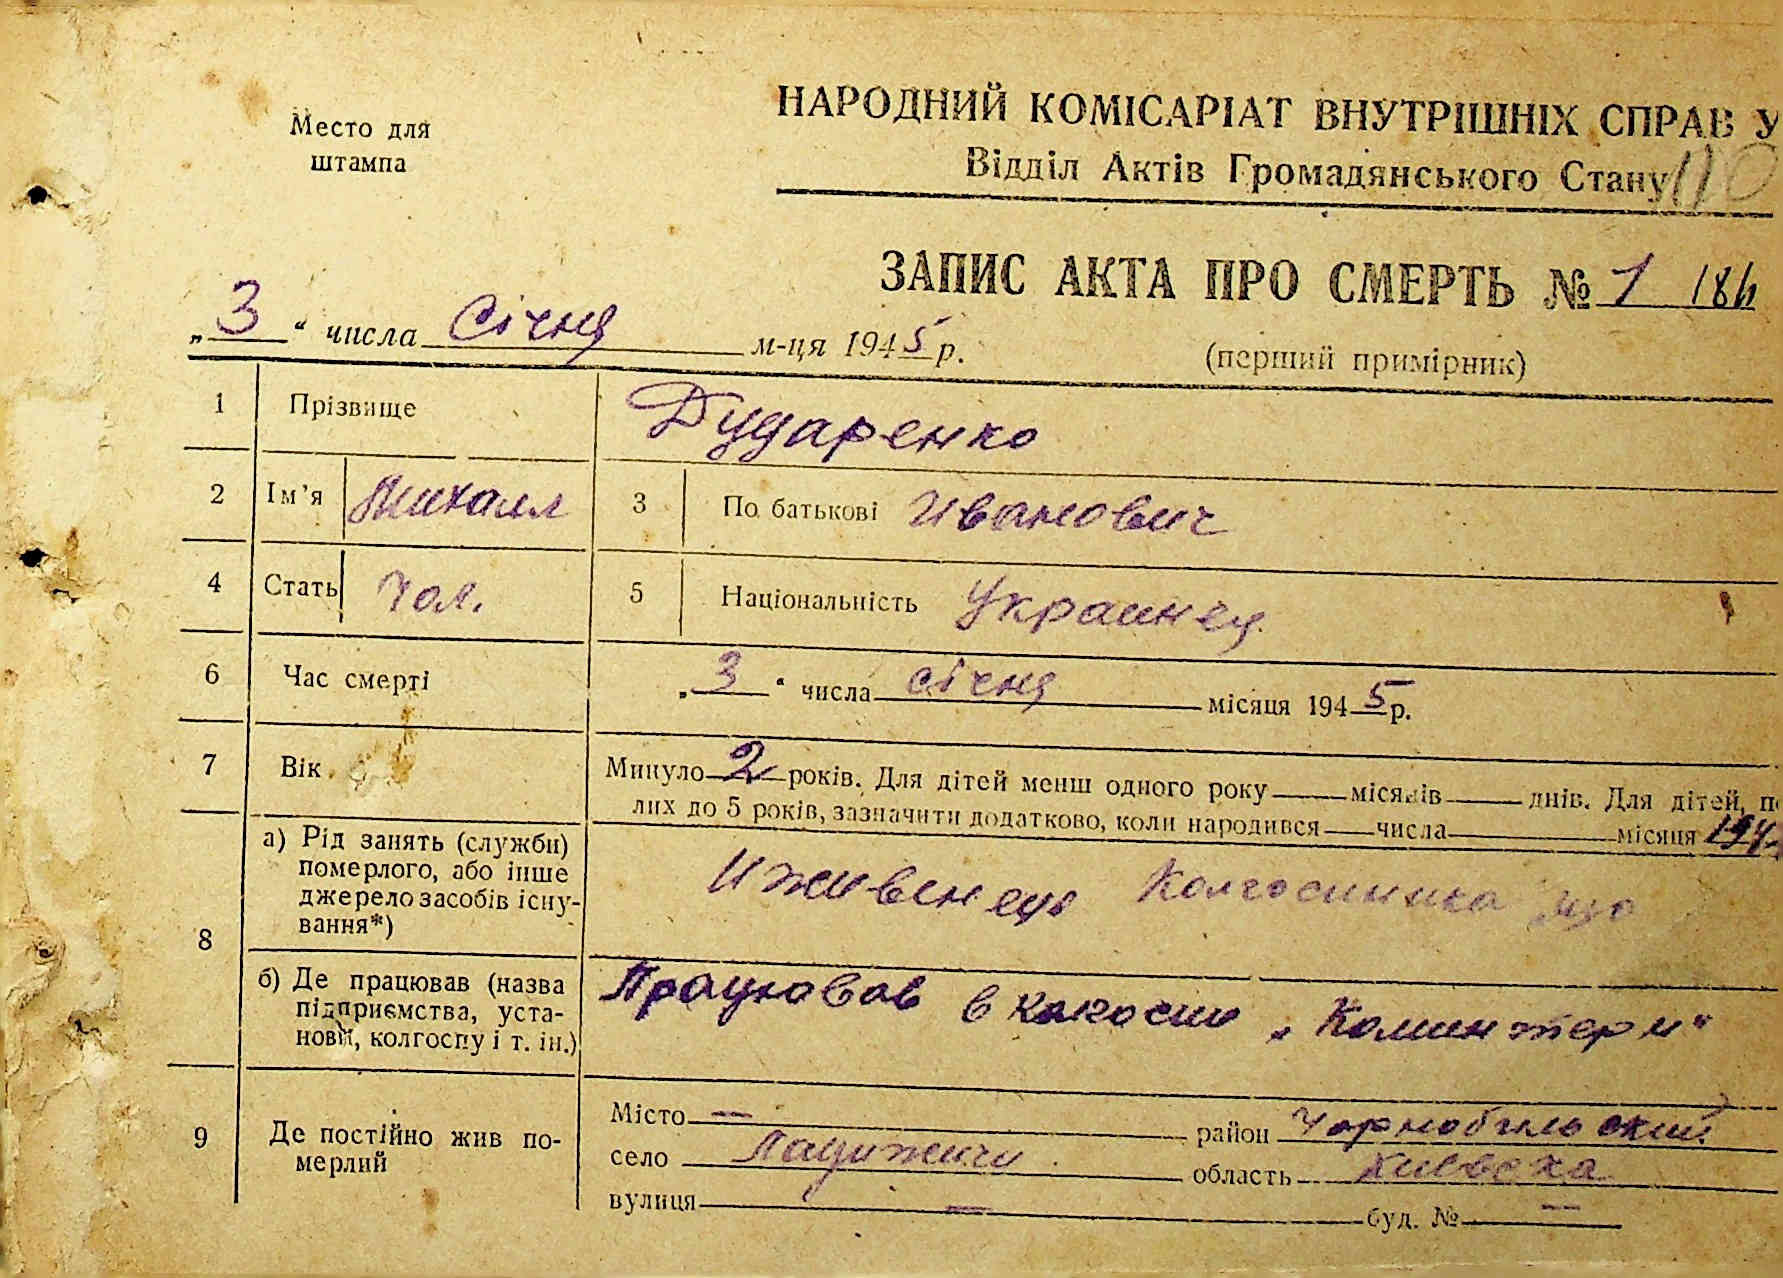 Место для
штампа
НАРОДНИЙ КОМІСАРІАТ ВНУТРІШНІХ СПРАВ У
Відділ Актів Громадянського Стану 110
ЗАПИС АКТА ПРО СМЕРТЬ № 1
„3“ числа Січня м-ця 1945 р. (перший примірник)
1 Прізвище Дударенко
2 Ім'я Михаил 3 По батькові Иванович
4 Стать Чол. 5 Національність Украинец
6 Час смерті „3“ числа січня місяця 1945 р.
7 Вік Минуло 2 років. Для дітей менш одного року місяців днів. Для дітей, по
лих до 5 років, зазначити додатково, коли народився числа місяця
8 а) Рід занять (служби)
померлого, або інше
джерело засобів існу-
вання*) Иживенець Колгоспника що
б) Де працював (назва
підприємства, уста-
нови, колгоспу і т. ін.) Працював в колгоспи „Коминтерн“
9 Де постійно жив по-
мерлий
Місто — район Чорнобильский
село Ладижичи область Киевска
вулиця — буд. № —